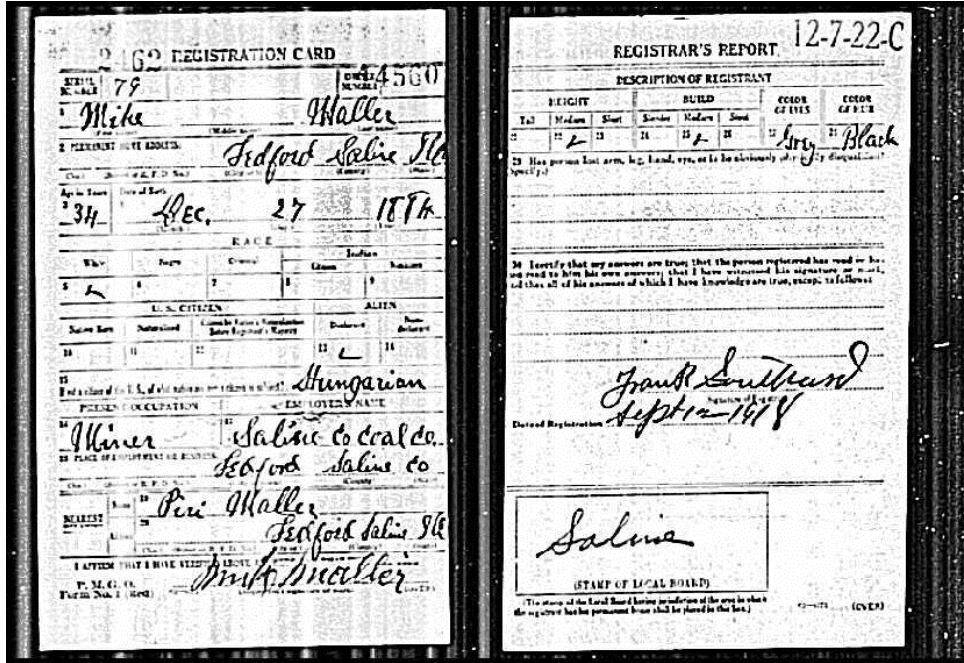 2462 REGISTRATION CARD
SERIAL NUMBER 79 ORDER NUMBER 4560
1 Mike Maller
(First name) (Middle name) (Last name)
2 PERMANENT HOME ADDRESS:
Ledford Saline Ill
Age in Years Date of Birth
3 34 Dec. 27 1884
RACE
White Negro Oriental Indian
Citizen Noncitizen
5 6 7 8 9
U. S. CITIZEN ALIEN
Native Born Naturalized Citizen by Father's Naturalization Before Registrant's Majority Declarant Non-declarant
10 11 12 13 14
15
If not a citizen of the U. S., of what nation are you a citizen or subject? Hungarian
PRESENT OCCUPATION EMPLOYER'S NAME
16 Miner 17 Saline Co Coal Co.
18 PLACE OF EMPLOYMENT OR BUSINESS:
Ledford Saline Co
NEAREST Name 19 Piri Maller
Address 20 Ledford Saline Ill
I AFFIRM THAT I HAVE VERIFIED ABOVE
P. M. G. O.
Form No. 1 (Red) Mike Maller (OVER)
REGISTRAR'S REPORT 12-7-22-C
DESCRIPTION OF REGISTRANT
HEIGHT BUILD COLOR OF EYES COLOR OF HAIR
Tall Medium Short Slender Medium Stout
21 22 23 24 25 26 27 Grey 28 Black
29 Has person lost arm, leg, hand, eye, or is he obviously physically disqualified?
(Specify.)
30 I certify that my answers are true; that the person registered has read or has
had read to him his own answers; that I have witnessed his signature or mark,
and that all of his answers of which I have knowledge are true, except as follows:
Frank Southard
Signature of Registrar
Date of Registration Sept 12 1918
Saline
(STAMP OF LOCAL BOARD)
(The stamp of the Local Board having jurisdiction of the area in which
the registrant has his permanent home shall be placed in this box.) (OVER)